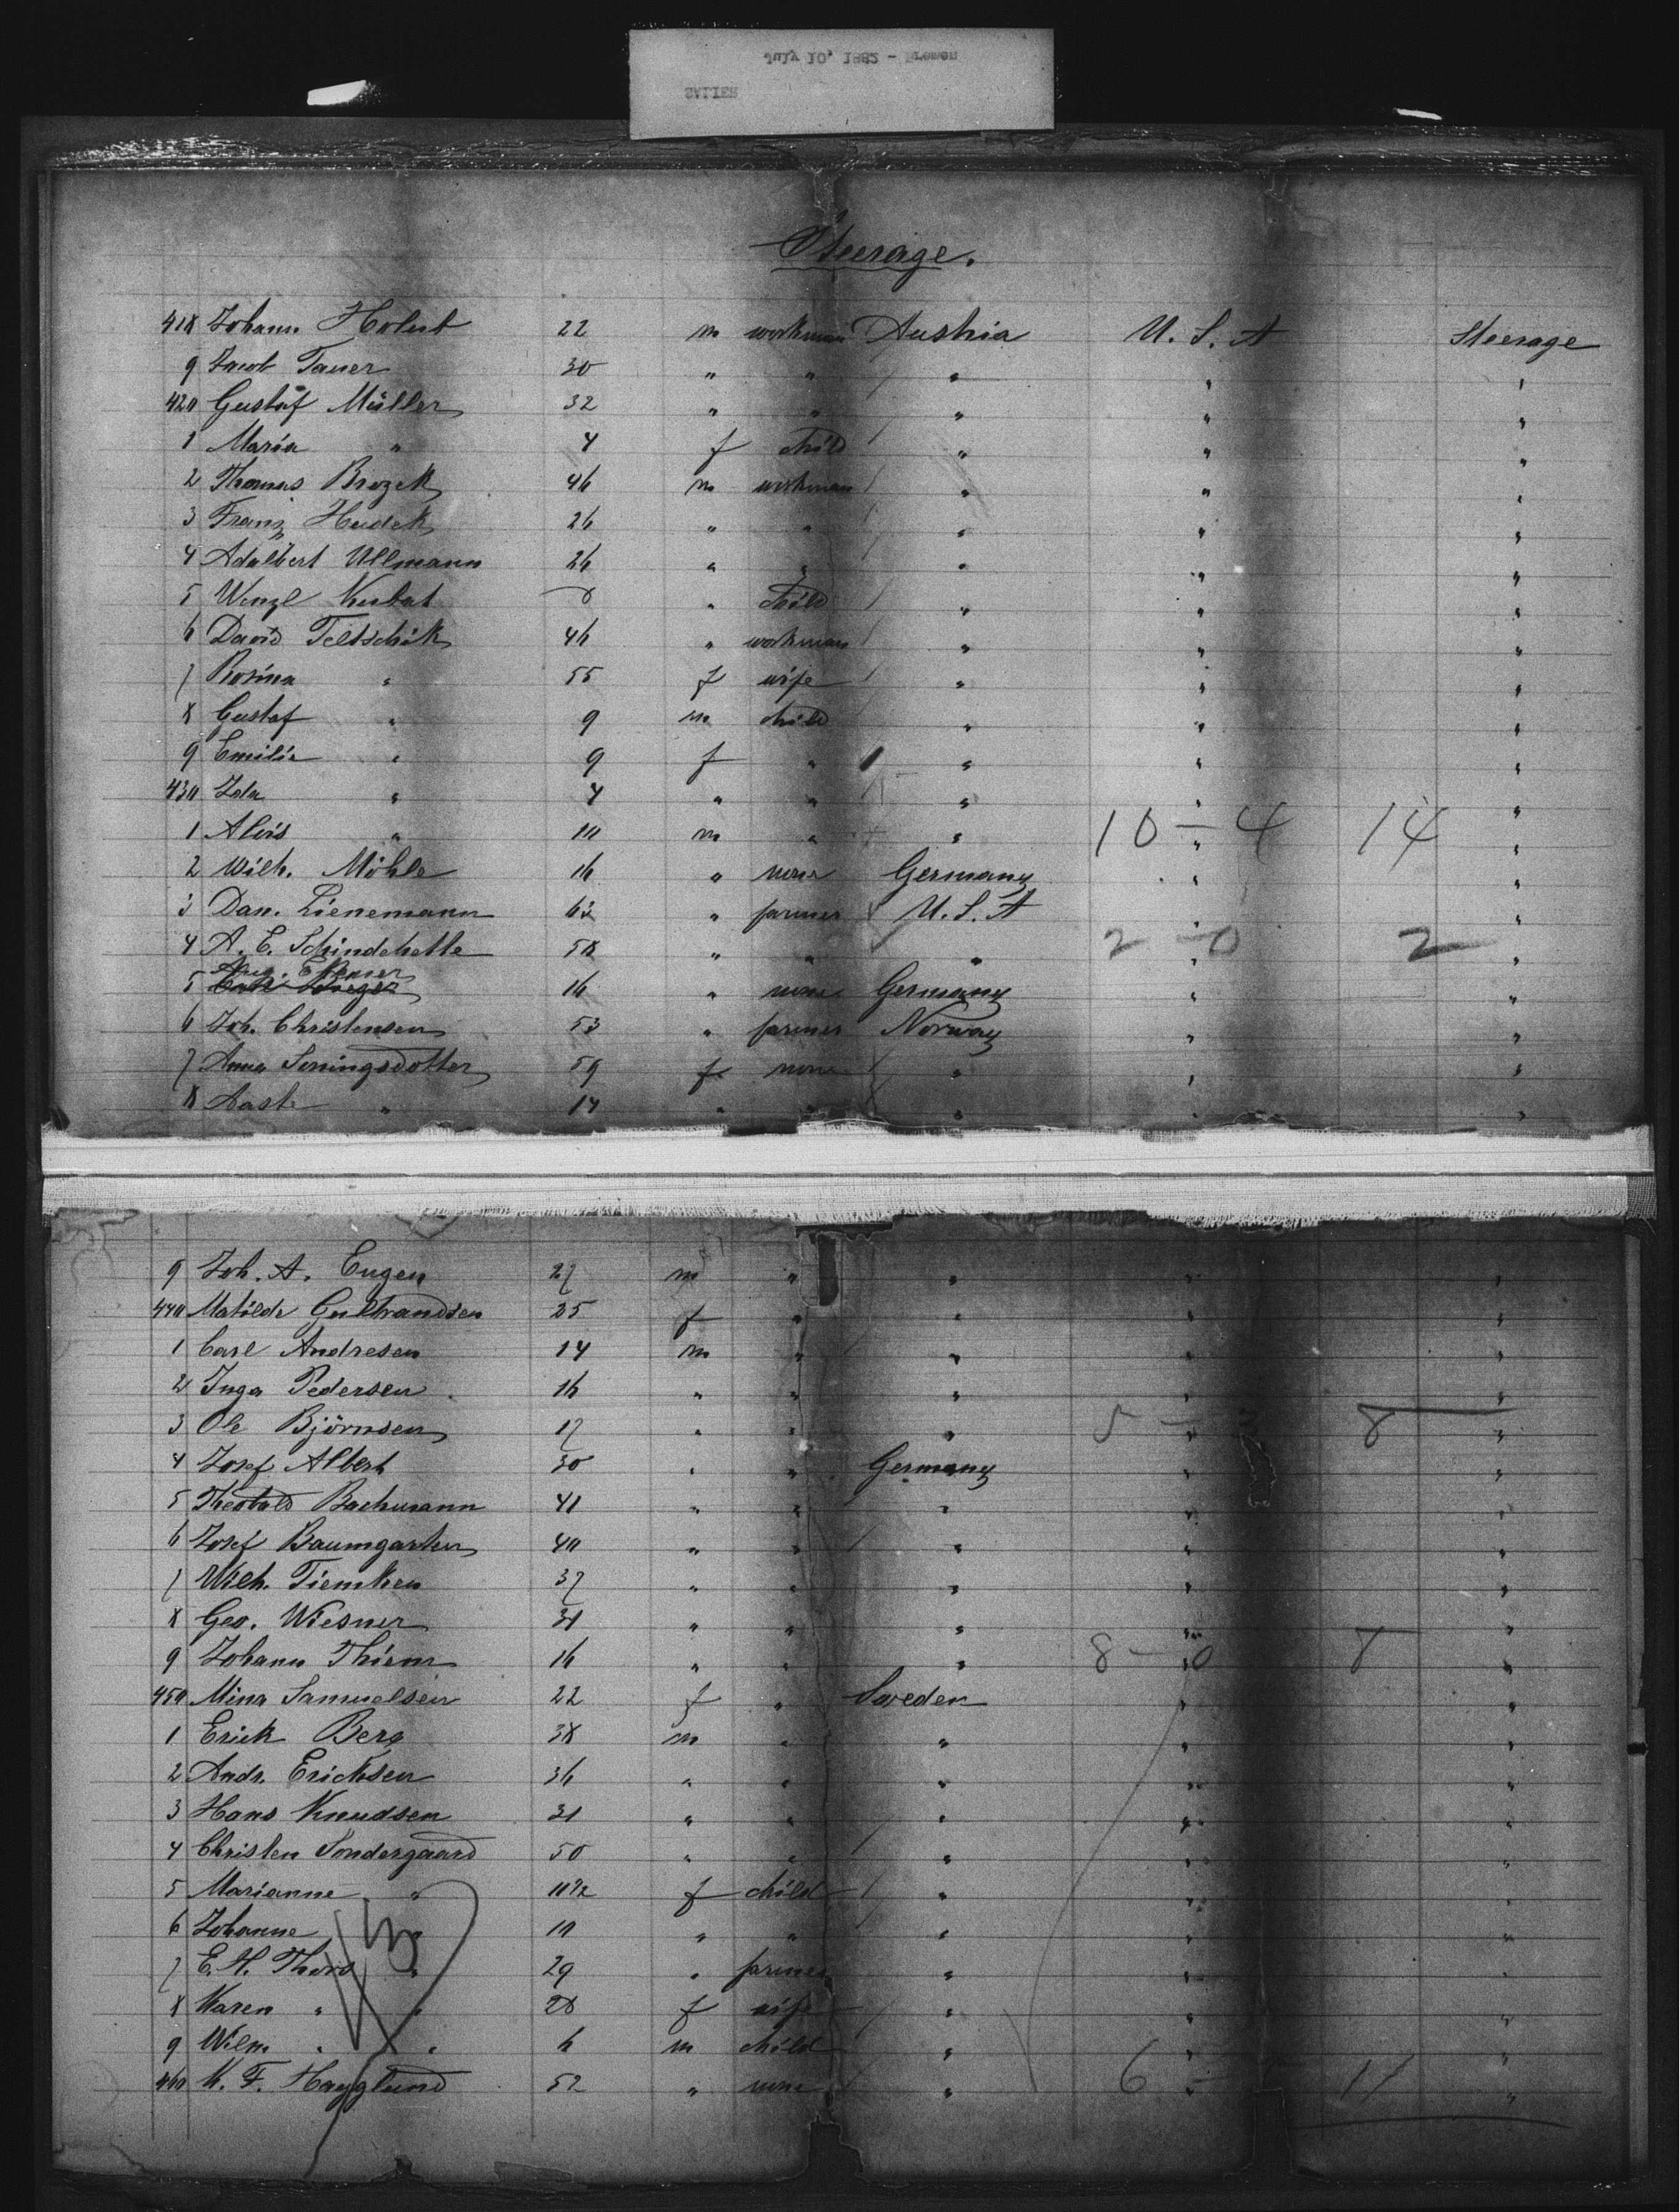 July 10, 1882 - Bremen
SALIER
Steerage.
418 Johann Holub 22 m workman Austria U. S. A Steerage
9 Jacob Tauer 30 " " " " "
420 Gustaf Müller 32 " " " " "
1 Maria " 4 f child " " "
2 Thomas Brozek 46 m workman " " "
3 Franz Hudek 26 " " " " "
4 Adalbert Ullmann 26 " " " " "
5 Wenzl Kubat 8 " child " " "
6 David Teltschik 46 " workman " " "
7 Rosina " 55 f wife " " "
8 Gustaf " 9 m child " " "
9 Emilie " 9 f " " " "
430 Ida " 4 " " " " "
1 Alois " 10 m " " " "
10 - 4 14
2 Wilh. Möhle 16 " none Germany " "
3 Dan. Lienemann 63 " farmer U. S. A " "
4 A. E. Schindehette 58 " " " " "
2 - 0 2
5 Aug. 16 " none Germany " "
6 Joh. Christensen 53 " farmer Norway " "
7 Anna 59 f none " " "
8 Aaste " 14 " " " " "
9 Joh. A. Eugen 27 m " " " "
440 Matilde Gulbrandsen 25 f " " " "
1 Carl Andresen 14 m " " " "
2 Inga Pedersen 16 " " " " "
3 Ole Björnsen 17 " " " " "
5 - 3 8
4 Josef Albert 30 " " Germany " "
5 Theobald Bachmann 41 " " " " "
6 Josef Baumgarten 40 " " " " "
7 Wilh. Tiemken 37 " " " " "
8 Geo. Wiesner 31 " " " " "
9 Johann Thieme 16 " " " " "
8 - 0 8
450 Mina Samuelsen 22 f " Sweden " "
1 Erick Berg 38 m " " " "
2 Andr. Ericksen 36 " " " " "
3 Hans Knudsen 31 " " " " "
4 Christen Sondergaard 50 " " " " "
5 Marianne " 11 1/2 f child " " "
6 Johanne " 10 " " " " "
7 E. H. " 29 " farmer " " "
8 Karen " " 28 f wife " " "
9 Wilm " " 6 m child " " "
460 K. F. Hagglund 52 " none " " "
6 11